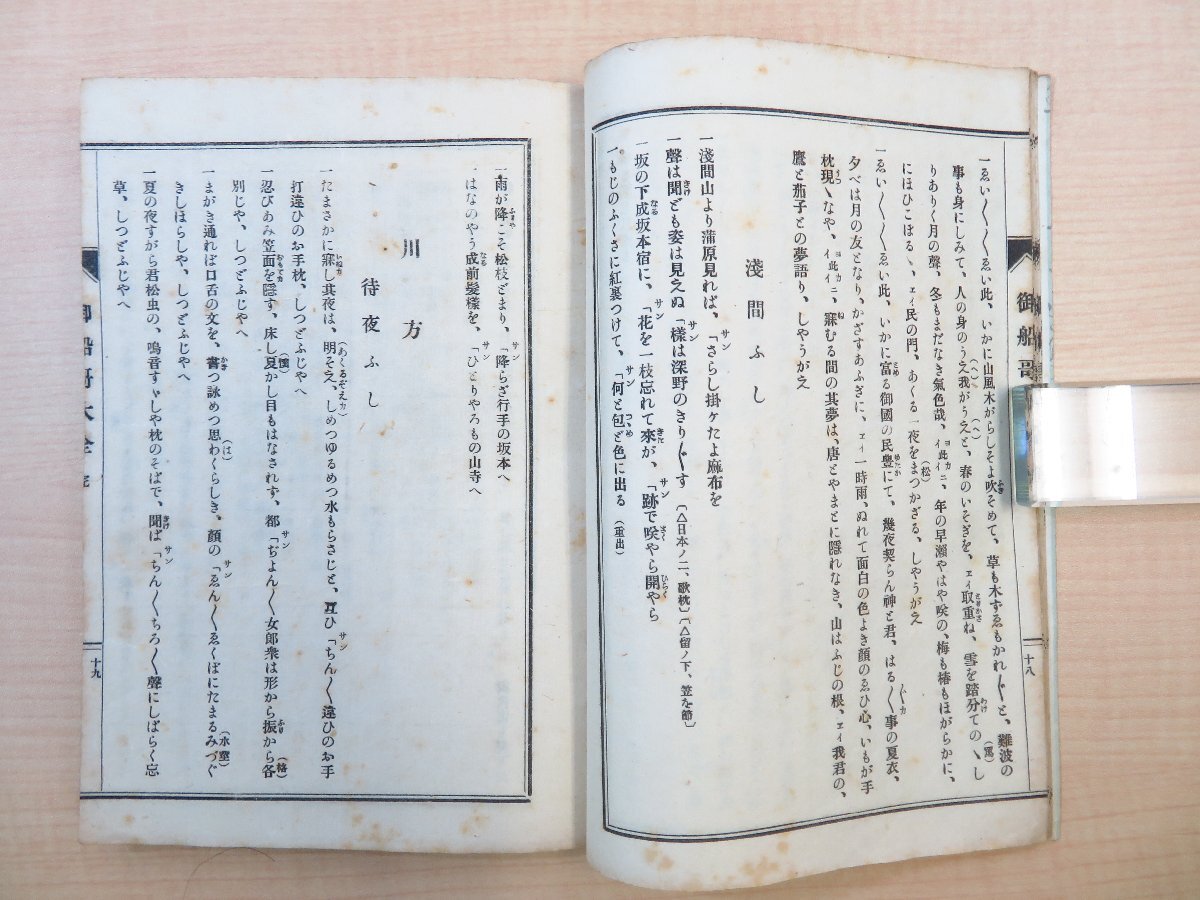 一ゑい〳〵〳〵ゑい此、いかに山風木がらしそよ吹そめて、草も木すゑもかれ〴〵と、難波の
事も身にしみて、人の身のうえ我がうえと、春のいそぎを、ェイ取重ね、雪を踏分てのゝし
りありく月の聲、冬もまだなき氣色哉、ィ此カニ、年の早瀬やはや咲の、梅も椿もほがらかに、
にほひこぼるゝ、ェイ民の門、あくる一夜をまつかざる、しやうがえ
一ゑい〳〵〳〵ゑい此、いかに富る御國の民豊にて、幾夜契らん神と君、はる〳〵事の夏衣、
夕べは月の友となり、かざすあふぎに、ェイ一時雨、ぬれて面白の色よき顔のゑひ心、いもが手
枕現ゝなや、ィ此カニ、寐むる間の其夢は、唐とやまとに隱れなき、山はふじの根、ェイ我君の、
鷹と茄子との夢語り、しやうがえ
淺間ふし
一淺間山より蒲原見れば、「さらし掛ケたよ麻布を
一聲は聞ども姿は見えぬ「樣は深野のきり〴〵す（△日本ノ二、歌枕）（△留ノ下、笠を節）
一坂の下成坂本宿に、「花を一枝忘れて來が、「跡で咲やら開やら
一もじのふくさに紅裏つけて、「何と包ど色に出る（重出）
御船哥
十八
一雨が降こそ松枝どまり、「降らざ行手の坂本へ
一はなのやう成前髪樣を、「ひとりやろもの山寺へ
川方
待夜ふし
一たまさかに寐し其夜は、明そえ、しめつゆるめつ水もらさじと、互ひ「ちん〳〵違ひのお手
打違ひのお手枕、しつどふじやへ
一忍びあみ笠面を隱す、床し夏かし目もはなされず、都「ぢよん〳〵女郎衆は形から振から各
別じや、しつどふじやへ
一まがき通れば口舌の文を、書つ詠めつ思わくらしき、顔の「ゑん〳〵ゑくぼにたまるみづぐ
きしほらしや、しつどふじやへ
一夏の夜すがら君松虫の、鳴音すゞしや枕のそばで、聞ば「ちん〳〵ちろ〳〵聲にしばらく忘
草、しつどふじやへ
御船哥大全 完
十九